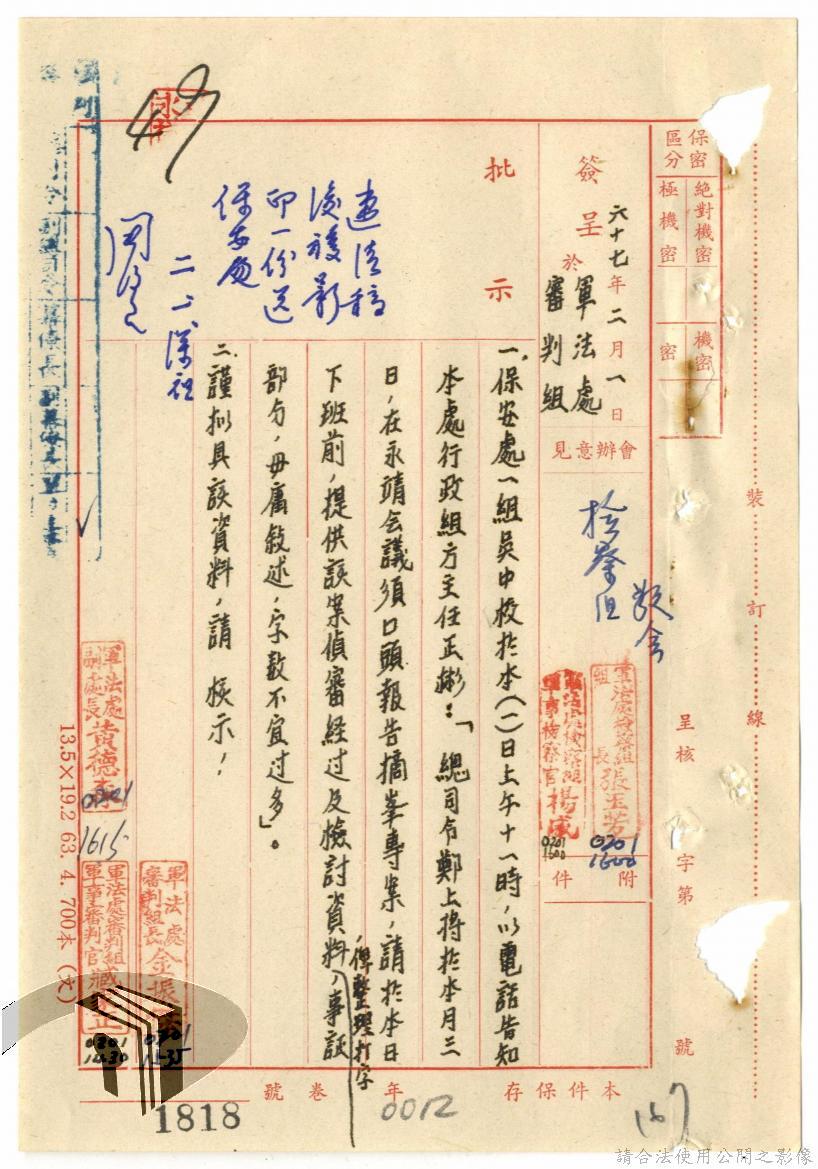 裝訂線
呈核
字第
號
保密區分
絕對機密
極機密
機密
密
簽呈
六十七年二月一日
於軍法處審判組
會辦意見
檢察組
敬會
軍法處檢察組組長張玉芳
0201
1600
軍法處檢察組軍事檢察官楊
0201
1600
附件
批示
一、保安處一組吳中校於本(一)日上午十一時,以電話告知
本處行政組方主任正彬:「總司令鄭上將於本月三
日,在永靖會議須口頭報告摘峯專案,請於本日
下班前,提供該案偵審經过及檢討資料,俾整理打字,事証
部勻,毋庸敘述,字數不宜过多」。
二、謹擬具該資料,請 核示!
影
印一份送
保安處
二、
軍法處副處長黃德
0201
1615
軍法處審判組長金振
0201
1535
軍法處審判組軍事審判官
0201
1430
13.5×19.2 63. 4. 700本 (文)
本件保存 年
卷 號
0012
1818
167
請合法使用公開之影像